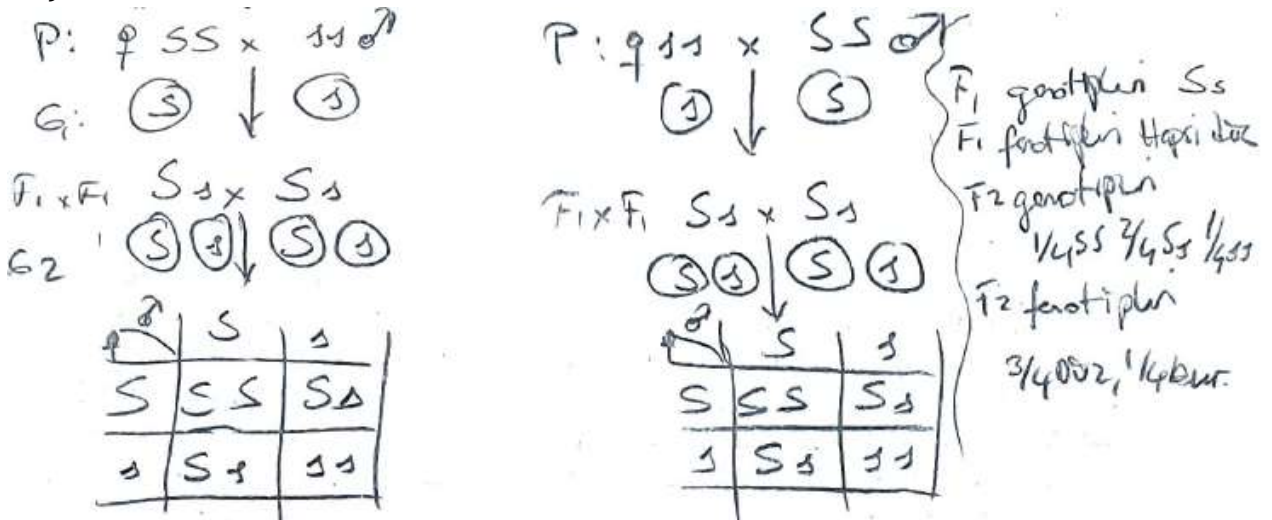 P: ♀ SS x ss ♂
G1: S s
F1 x F1 Ss x Ss
G2 S s S s
♀ ♂ S s
S SS Ss
s Ss ss
P: ♀ ss x SS ♂
s S
F1 x F1 Ss x Ss
S s S s
♀ ♂ S s
S SS Ss
s Ss ss
F1 genotipleri Ss
F1 fenotipleri Hepsi düz
F2 genotipleri
1/4 SS 2/4 Ss 1/4 ss
F2 fenotipleri
3/4 Düz, 1/4 bur.